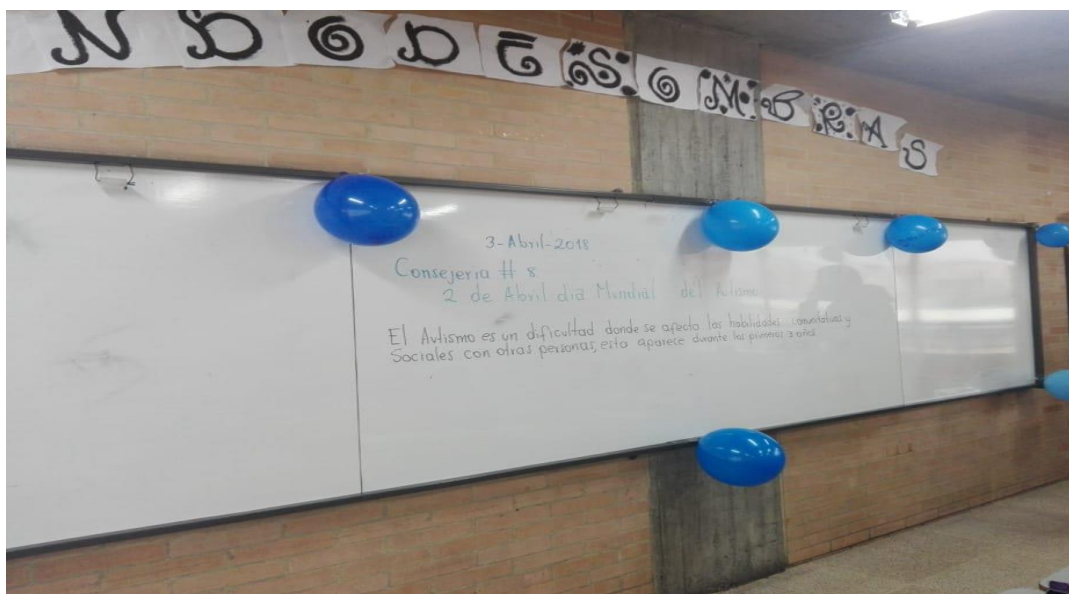 NDO DE SOMBRAS
3-Abril-2018
Consejeria # 8
2 de Abril dia Mundial del Autismo
El Autismo es un dificultad donde se afecta las habilidades comunitativas y
Sociales con otras personas, esta aparece durante los primeros 3 años